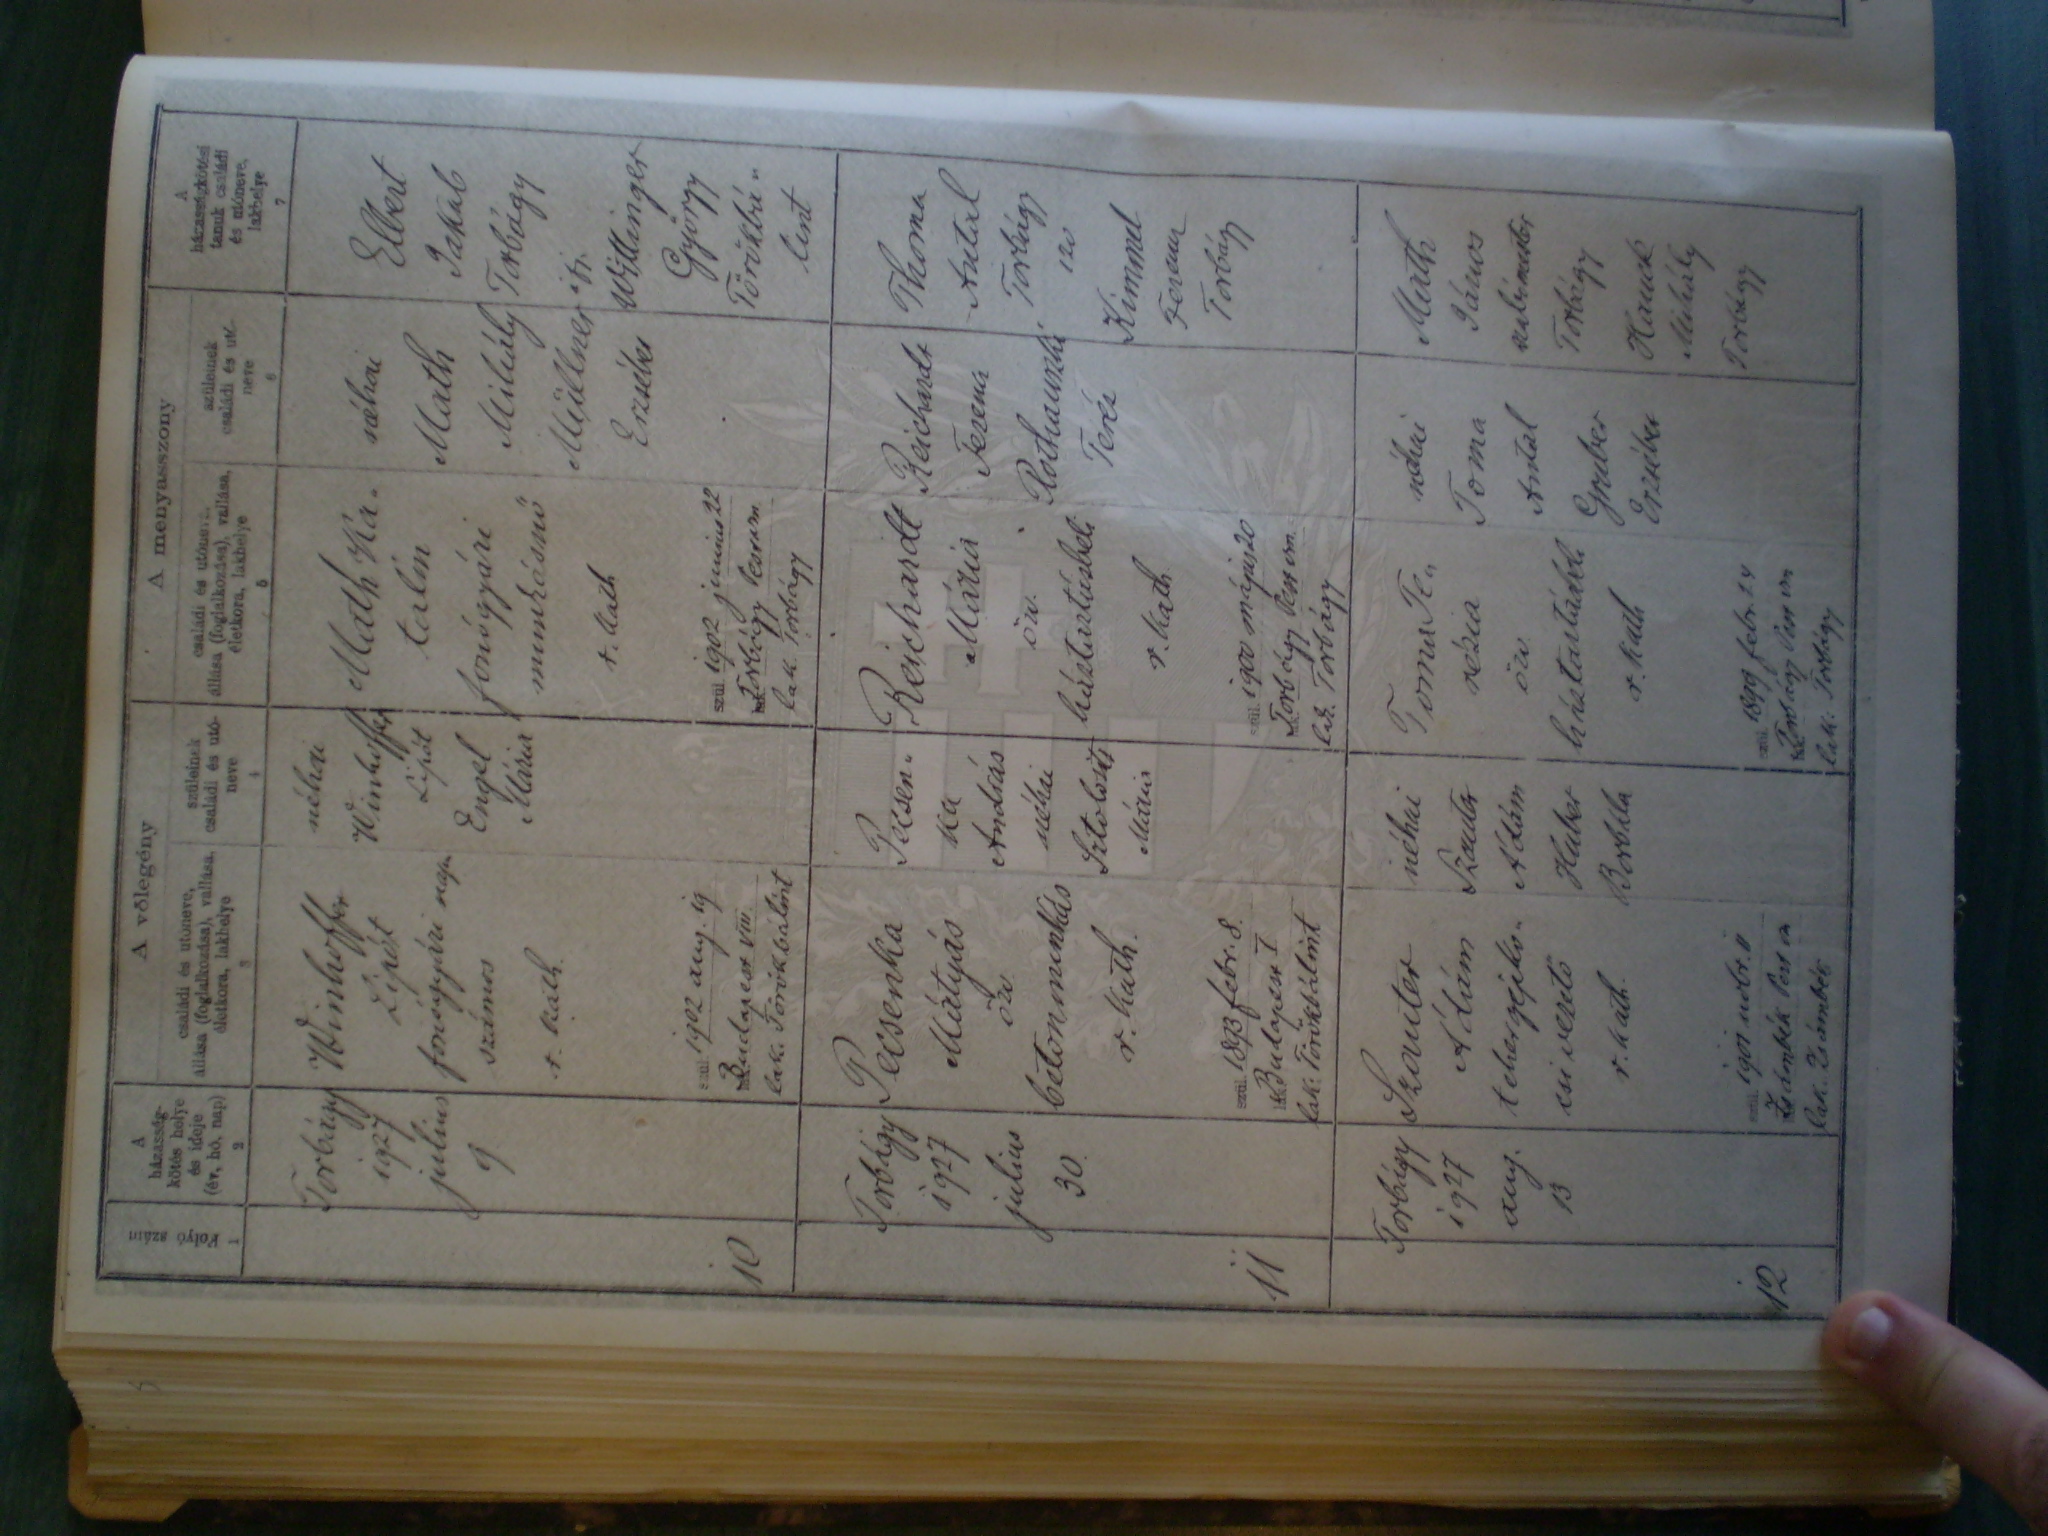 A vőlegény
A menyasszony
1
Folyó
szám
2
A
házasság-
kötés helye
és ideje
(év, hó, nap)
3
családi és utóneve,
állása (foglalkozása), vallása,
életkora, lakhelye
4
szüleinek
családi és utó-
neve
5
családi és utóneve,
állása (foglalkozása), vallása,
életkora, lakhelye
6
szüleinek
családi és utó-
neve
7
A
házasságkötési
tanuk családi
és utóneve,
lakhelye
10
Torbágy
1927
julius
9
Winhoffer
Lipót
fonógyári nap
számos
r. kath.
szül. 1902 aug. 19
Budapest VIII.
lak. Törökbálint
néhai
Winhoffer
Lipót
Engel
Mária
Math Ka-
talin
fonógyári
munkásnő
r. kath
szül. 1902 junius 22
Torbágy Pest vm.
lak. Torbágy
néhai
Math
Mihály
Müllner
Erzsébet
Elbert
Jakab
Torbágy
ifj.
Wittinger
György
Törökbá-
lint
11
Torbágy
1927
julius
30.
Pecsenka
Mátyás
özv.
betonmunkás
r. kath.
szül. 1893 febr. 8.
Budapest I
lak. Törökbálint
Pecsen-
ka
András
néhai
Mária
Reichardt
Mária
özv.
háztartásbeli
r. kath.
szül. 1900 május 20
Torbágy Pest vm.
lak. Torbágy
Reichardt
Ferenc
Teréz
Thoma
Antal
Torbágy
120
Kimmel
Ferenc
Torbágy
12
Torbágy
1927
aug.
13
Szauter
Ádám
csi vezető
r. kath.
szül. 1901
Zsámbék Pest vm
lak. Zsámbék
néhai
Szauter
Ádám
Huber
Borbála
Toma Te-
rézia
özv.
háztartásbeli
r. kath
szül. 1899 febr. 24
Torbágy Pest vm
lak. Torbágy
néhai
Toma
Antal
Gruber
Erzsébet
Math
János
Torbágy
Hauck
Mihály
Torbágy